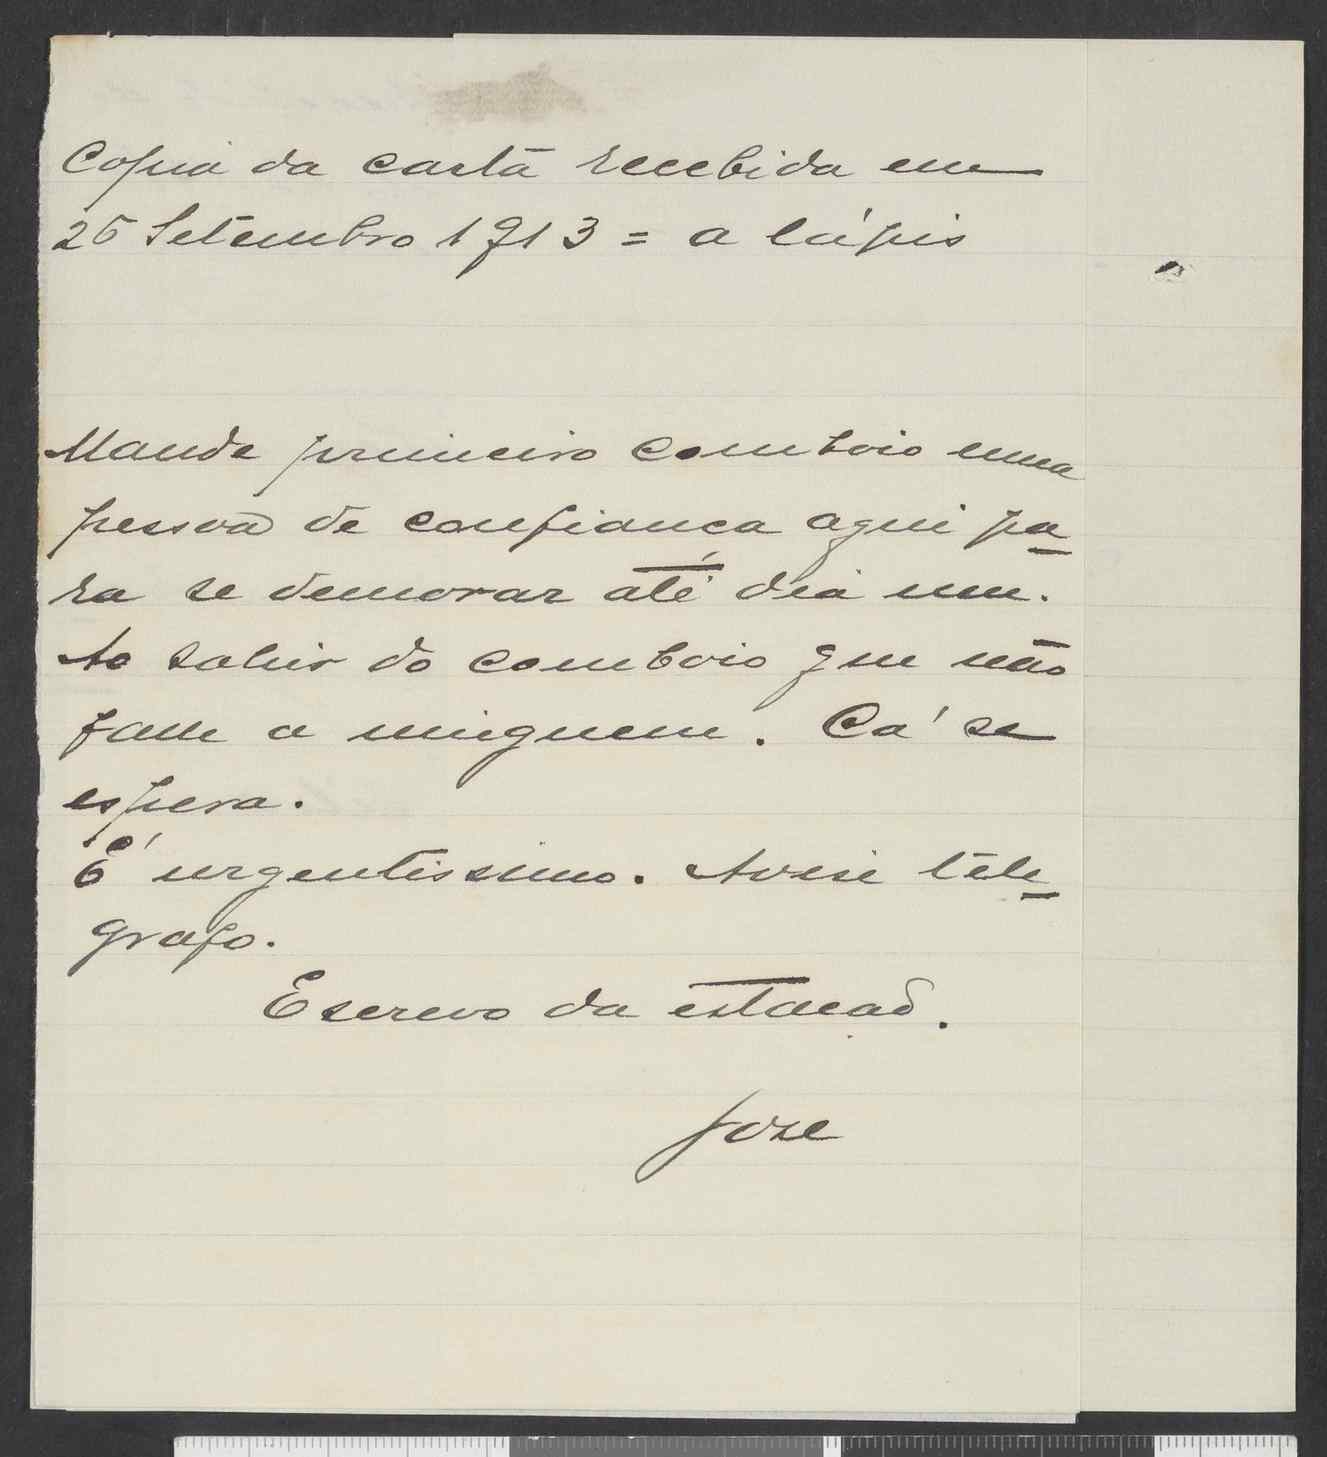 Copia da carta recebida em
25 Setembro 1913 = a lápis
Mande primeiro comboio uma
pessoa de confiança aqui pa-
ra se demorar até dia um.
Ao sahir do comboio que não
falle a ninguem. Cá se
espera.
É urgentissimo. Avise tele-
grafo.
Escrevo da estacão.
José